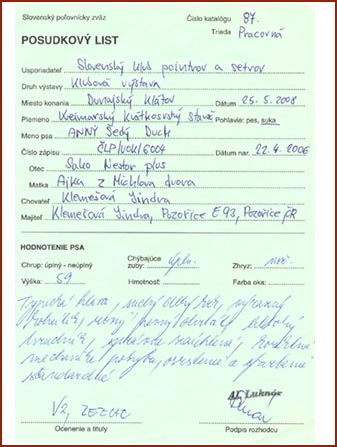 Slovenský poľovnícky zväz
Číslo katalógu 87.
Trieda Pracovná
POSUDKOVÝ LIST
Usporiadateľ Slovenský klub pointrov a setrov
Druh výstavy Klubová výstava
Miesto konania Dunajský Klátov Dátum 25.5.2008
Plemeno Weimarský Krátkosrstý stavač Pohlavie: pes, suka
Meno psa ANNY Šedý Duch
Číslo zápisu ČLP/VOK/6004 Dátum nar. 22.4.2006
Otec Sako Nestor plus
Matka Ajka z Michlova dvora
Chovateľ Klemešová Jindra
Majiteľ Klemešová Jindra, Pozořice E93, Pozořice ČR
HODNOTENIE PSA
Chrup: úplný - neúplný Chýbajúce zuby: úpln. Zhryz: nož.
Výška: 59 Hmotnosť: Farba oka:
Typická hlava, oko, výrazný
pevný chrbát, hlboký
hrudník, správne zauhlená, korektná
mechanika pohybu, osrstenie a sfarbenie
standardné
V2, RES CAC
Ocenenie a tituly
Podpis rozhodcu